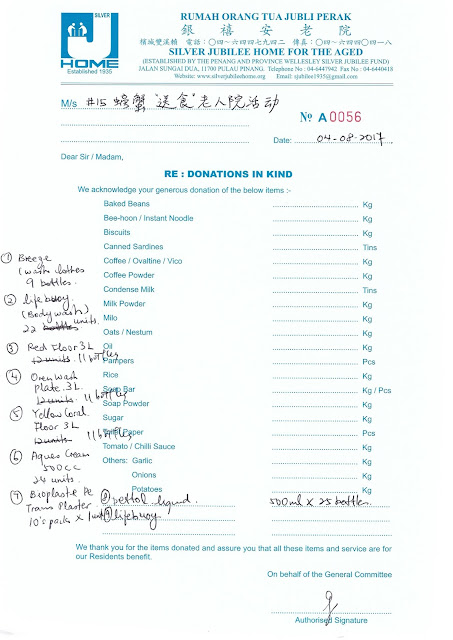 J
HOME
Established 1935
SILVER
JUBILEE
RUMAH ORANG TUA JUBLI PERAK
銀禧安老院
檳城雙溪賴 電話:〇四~六四四七九四二 傳真:〇四~六四四〇四一八
SILVER JUBILEE HOME FOR THE AGED
(ESTABLISHED BY THE PENANG AND PROVINCE WELLESLEY SILVER JUBILEE FUND)
JALAN SUNGAI DUA, 11700 PULAU PINANG. Telephone No : 04-6447942 Fax No : 04-6440418
Website: www.silverjubileehome.org Email: sjubilee1935@gmail.com
M/s #15 螃蟹 "送食" 老人院活动
No A 0056
Date: 04-08-2017
Dear Sir / Madam,
RE : DONATIONS IN KIND
We acknowledge your generous donation of the below items :-
Baked Beans Kg
Bee-hoon / Instant Noodle Kg
Biscuits Kg
Canned Sardines Tins
Coffee / Ovaltine / Vico Kg
Coffee Powder Kg
Condense Milk Tins
Milk Powder Kg
Milo Kg
Oats / Nestum Kg
Oil Kg
Pampers Pcs
Rice Kg
Soap Bar Kg / Pcs
Soap Powder Kg
Sugar Kg
Toilet Paper Pcs
Tomato / Chilli Sauce Kg
Others: Garlic Kg
Onions Kg
Potatoes Kg
① Breeze
(wash clothes
9 bottles.
② lifebuoy
(Body wash)
22 bottles units.
③ Red Floor 3L
12 units. 11 bottles
④ Oren wash
plate 3L.
12 units. 11 bottles
⑤ Yellow Coral
Floor 3L
12 units 11 bottles
⑥ Aques Cream
500cc
24 units.
⑦ Bioplaste Pe
Trans Plaster
10's pack x 1 unit
⑧ Dettol liquid. 500ml x 25 bottles.
lifebuoy
We thank you for the items donated and assure you that all these items and service are for
our Residents benefit.
On behalf of the General Committee
Authorised Signature